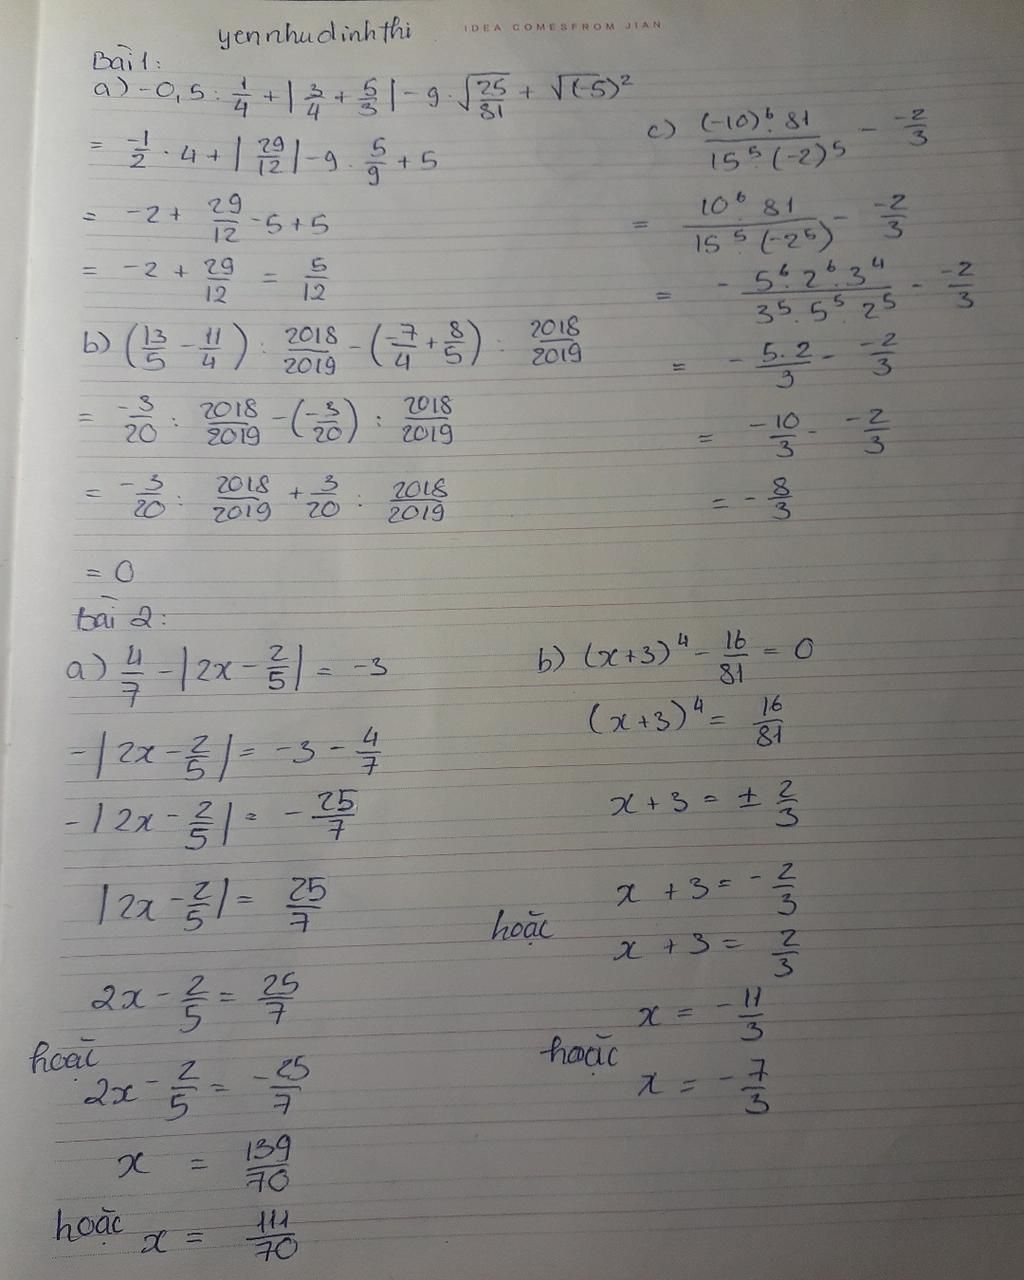 yennhudinhthi IDEA COMESFROM JIAN
Bài 1:
a) -0,5 : 1/4 + | 3/4 + 5/3 | - 9 . √(25/81) + √(-5)²
= -1/2 . 4 + | 29/12 | - 9 . 5/9 + 5
= -2 + 29/12 - 5 + 5
= -2 + 29/12 = 5/12
b) (13/5 - 11/4) : 2018/2019 - (-7/4 + 8/5) : 2018/2019
= -3/20 : 2018/2019 - (-3/20) : 2018/2019
= -3/20 : 2018/2019 + 3/20 : 2018/2019
= 0
c) (-10)⁶ . 81 / 15⁵ . (-2)⁵ - -2/3
= 10⁶ . 81 / 15⁵ (-2⁵) - -2/3
= - 5⁶ . 2⁶ . 3⁴ / 3⁵ . 5⁵ . 2⁵ - -2/3
= - 5.2/3 - -2/3
= -10/3 - -2/3
= - 8/3
bài 2:
a) 4/7 - | 2x - 2/5 | = -3
- | 2x - 2/5 | = -3 - 4/7
- | 2x - 2/5 | = - 25/7
| 2x - 2/5 | = 25/7
2x - 2/5 = 25/7
hoặc
2x - 2/5 = -25/7
x = 139/70
hoặc x = 111/70
b) (x+3)⁴ - 16/81 = 0
(x+3)⁴ = 16/81
x + 3 = ± 2/3
x + 3 = - 2/3
hoặc
x + 3 = 2/3
x = - 11/3
hoặc
x = - 7/3